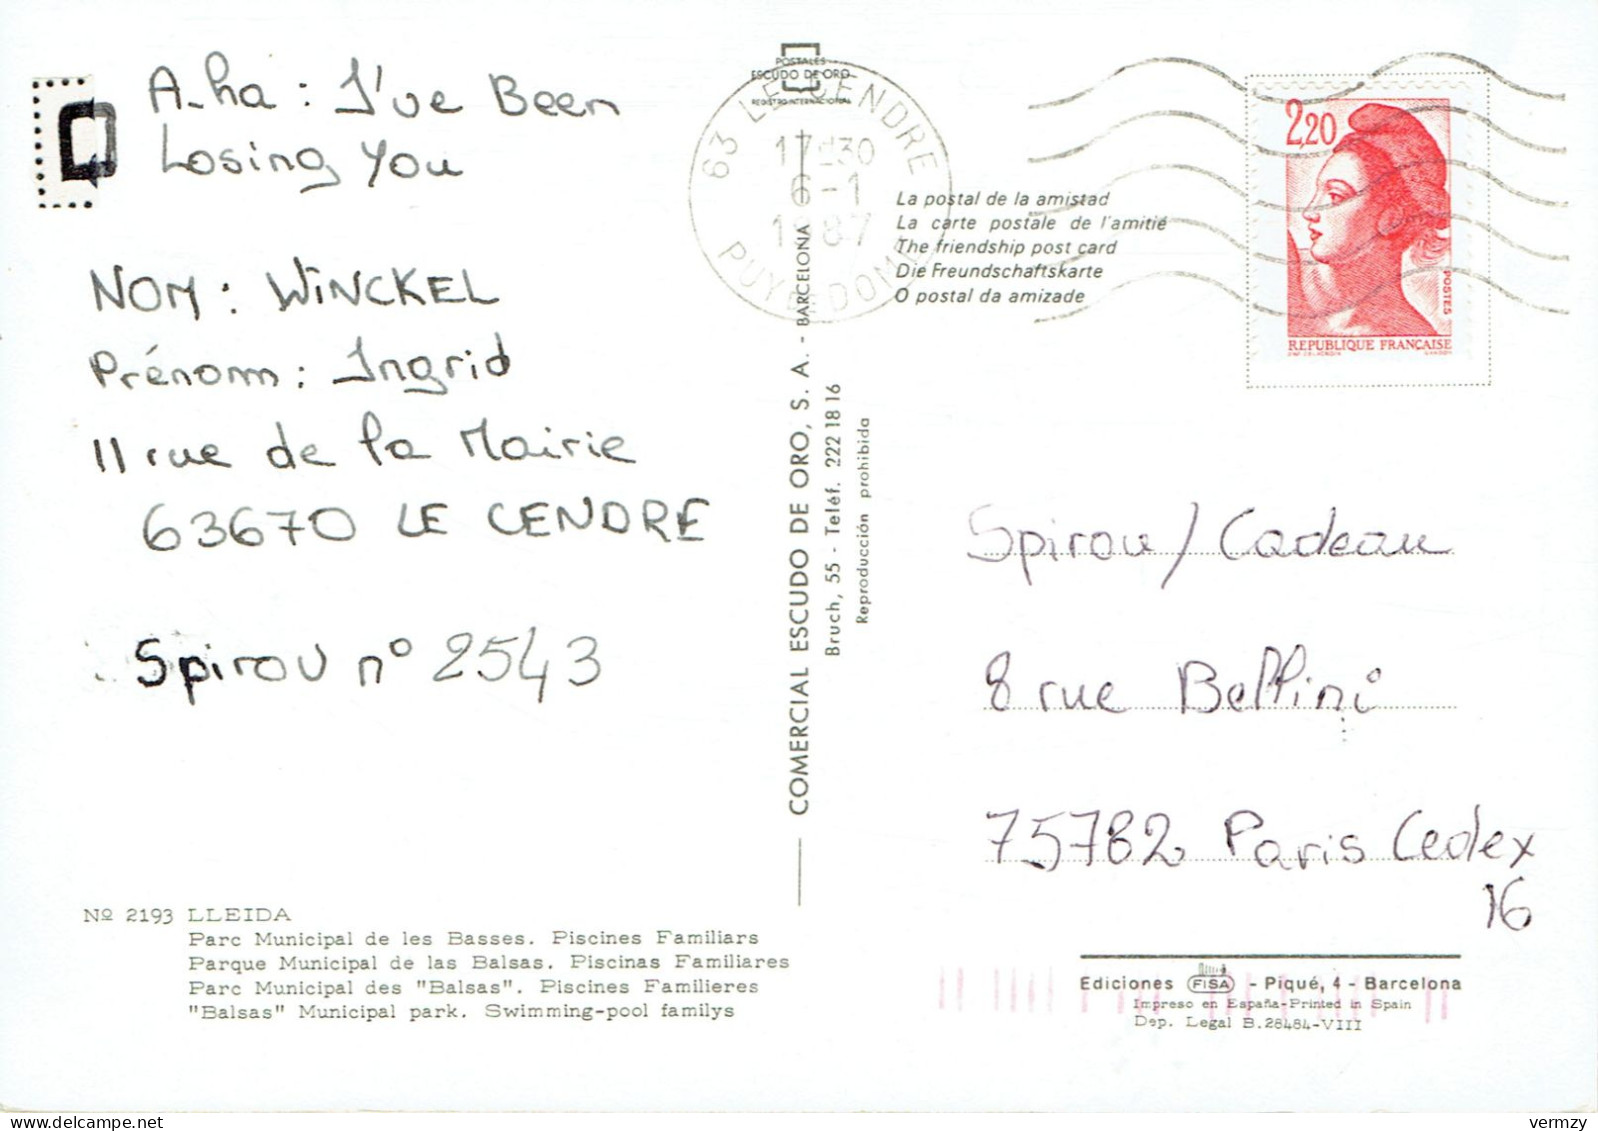 A-ha : I've Been
Losing You
NOM : WINCKEL
Prénom : Ingrid
11 rue de la Mairie
63670 LE CENDRE
Spirou n° 2543
Nº 2193 LLEIDA
Parc Municipal de les Basses. Piscines Familiars
Parque Municipal de las Balsas. Piscinas Familiares
Parc Municipal des "Balsas". Piscines Familieres
"Balsas" Municipal park. Swimming-pool familys
POSTALES
ESCUDO DE ORO
REGISTRO INTERNACIONAL
63 LE CENDRE
17H30
6-1
1987
PUY-DE-DOME
COMERCIAL ESCUDO DE ORO, S. A. - BARCELONA
Bruch, 55 - Teléf. 222 18 16
Reproducción prohibida
La postal de la amistad
La carte postale de l'amitié
The friendship post card
Die Freundschaftskarte
O postal da amizade
2,20
POSTES
REPUBLIQUE FRANÇAISE
GANDON
Spirou / Cadeau
8 rue Bellini
75782 Paris Cedex
16
Ediciones FISA - Piqué, 4 - Barcelona
Impreso en España-Printed in Spain
Dep. Legal B. 28484-VIII
vermzy